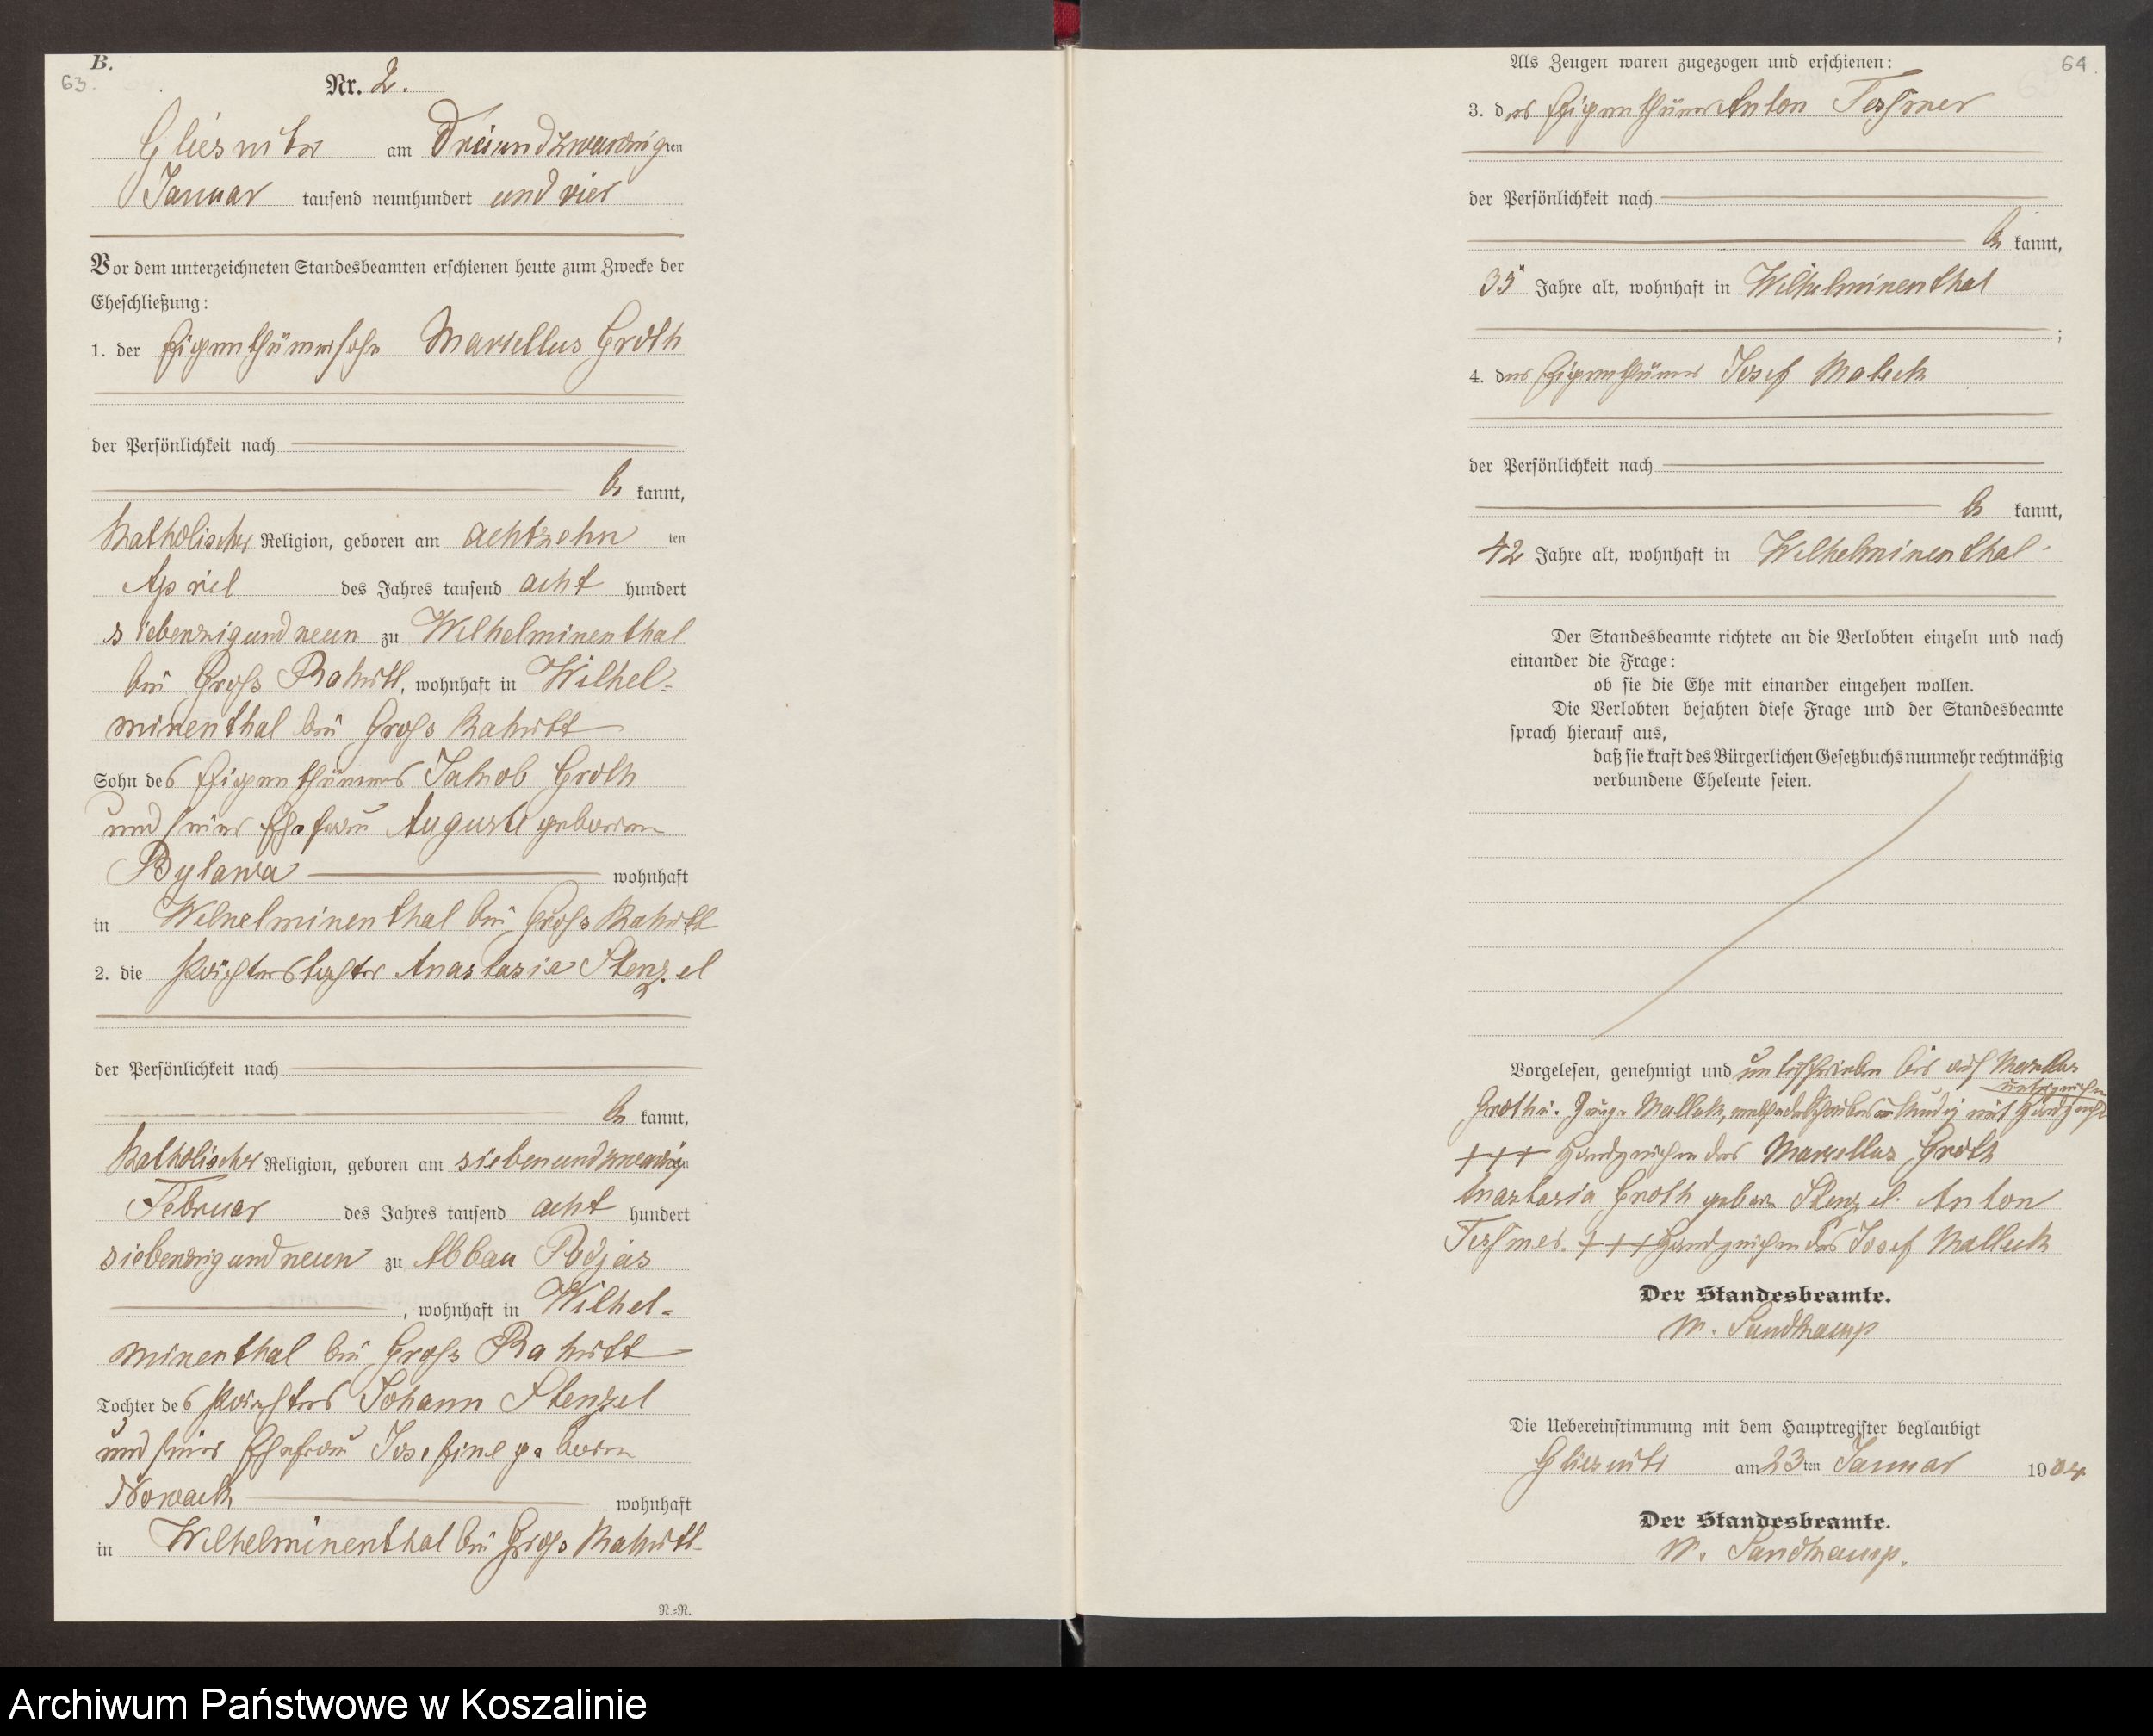 B.
63.
Nr. 2.
Gliesnitz am Dreiundzwanzigten
Januar tausend neunhundert und vier
Vor dem unterzeichneten Standesbeamten erschienen heute zum Zwecke der
Eheschließung:
1. der Eigenthümersohn Marcellus Groth
der Persönlichkeit nach
be kannt,
Katholischer Religion, geboren am achtzehn ten
April des Jahres tausend acht hundert
siebenzigundneun zu Wilhelminenthal
bei Gross Rakitt, wohnhaft in Wilhel-
minenthal bei Gross Rakitt
Sohn des Eigenthümers Jakob Groth
und seiner Ehefrau Auguste geboren
Bylawa wohnhaft
in Wilhelminenthal bei Gross Rakitt
2. die Pächterstochter Anastasia Stenzel
der Persönlichkeit nach
be kannt,
Katholischer Religion, geboren am siebenundzwanzig
Februar des Jahres tausend acht hundert
siebenzigundneun zu Abbau Podjas
, wohnhaft in Wilhel-
minenthal bei Gross Rakitt
Tochter des Pächters Johann Stenzel
und seiner Ehefrau Josefine geboren
Nowack wohnhaft
in Wilhelminenthal bei Gross Rakitt
N.=R.
Als Zeugen waren zugezogen und erschienen:
64.
3. der Eigenthümer Anton Tessmer
der Persönlichkeit nach
be kannt,
35 Jahre alt, wohnhaft in Wilhelminenthal
;
4. der Eigenthümer Josef Maleck
der Persönlichkeit nach
be kannt,
42 Jahre alt, wohnhaft in Wilhelminenthal
Der Standesbeamte richtete an die Verlobten einzeln und nach
einander die Frage:
ob sie die Ehe mit einander eingehen wollen.
Die Verlobten bejahten diese Frage und der Standesbeamte
sprach hierauf aus,
daß sie kraft des Bürgerlichen Gesetzbuchs nunmehr rechtmäßig
verbundene Eheleute seien.
Vorgelesen, genehmigt und unterschrieben bis auf Marcellus
Groth u. Zeuge Malleck, welche des Schreibens unkundig mit Handzeichen
+++ Handzeichen des Marcellus Groth
Anastasia Groth geboren Stenzel. Anton
Tessmer. +++ Handzeichen des Josef Malleck
Der Standesbeamte.
W. Sandkamp
Die Uebereinstimmung mit dem Hauptregister beglaubigt
Gliesnitz am 23 ten Januar 1904
Der Standesbeamte.
W. Sandkamp.
Archiwum Państwowe w Koszalinie